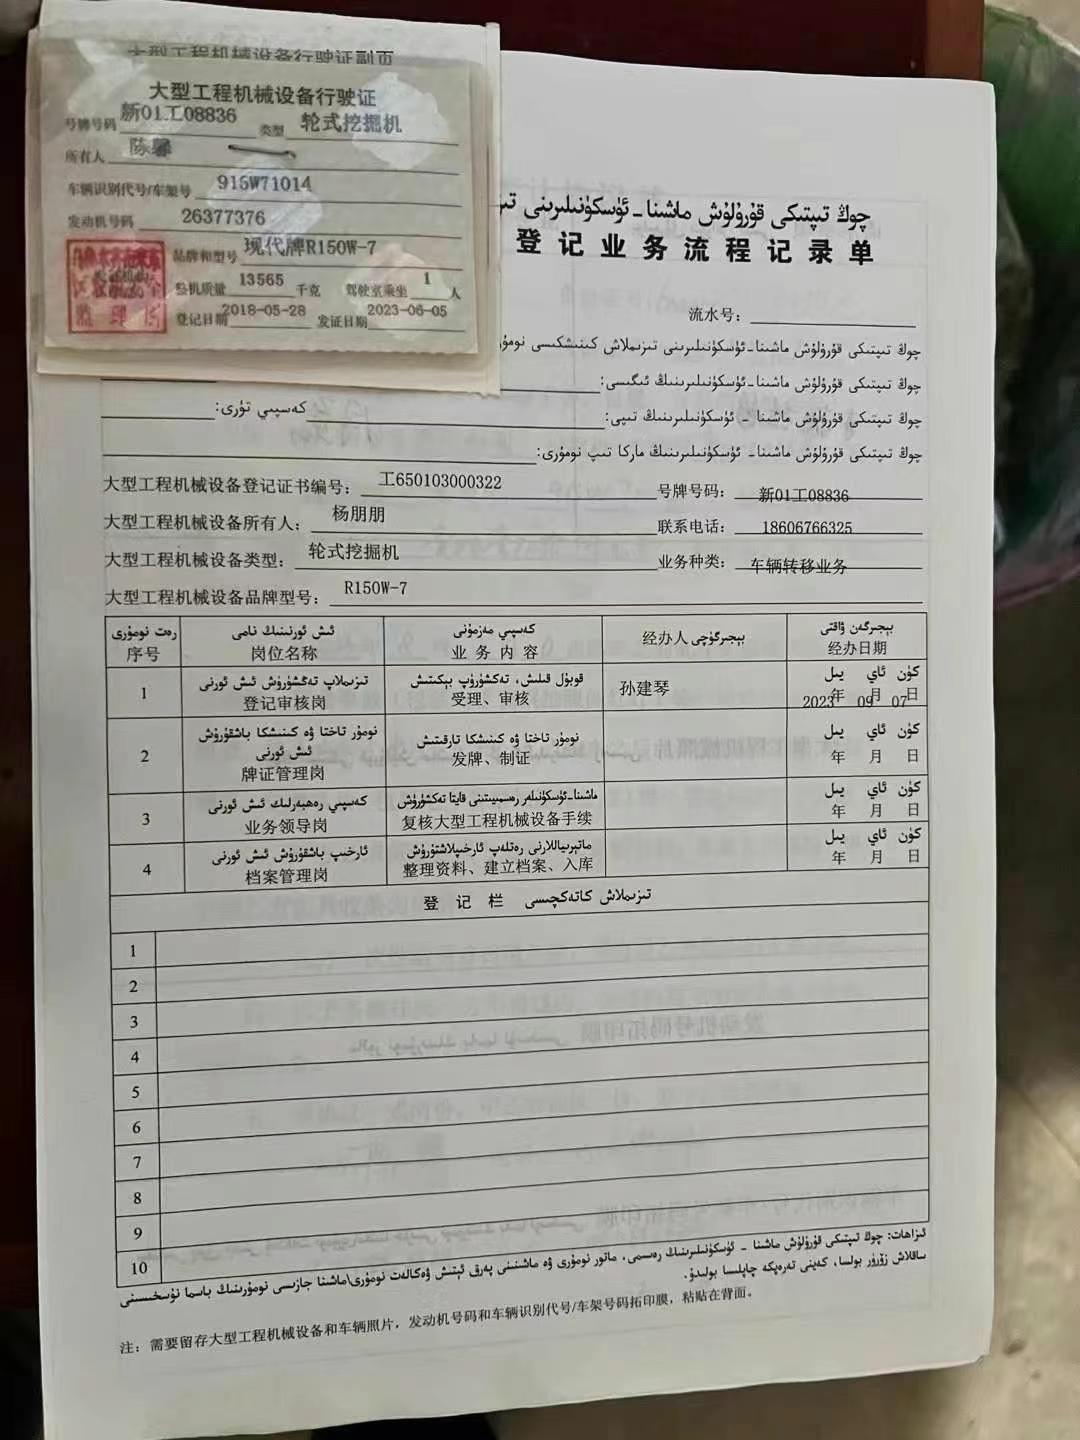 大型工程机械设备行驶证副页
大型工程机械设备行驶证
号牌号码 新01工08836 类型 轮式挖掘机
所有人 陈馨
车辆识别代号/车架号 915W71014
发动机号码 26377376
品牌和型号 现代牌R150W-7
整机质量 13565 千克 驾驶室乘坐 1 人
登记日期 2018-05-28 发证日期 2023-06-05
چوڭ تىپتىكى قۇرۇلۇش ماشىنا-ئۈسكۈنىلىرىنى
登记业务流程记录单
流水号：
چوڭ تىپتىكى قۇرۇلۇش ماشىنا-ئۈسكۈنىلىرىنى تىزىملاش كىنىشكىسى نومۇ
چوڭ تىپتىكى قۇرۇلۇش ماشىنا-ئۈسكۈنىلىرىنىڭ ئىگىسى:
چوڭ تىپتىكى قۇرۇلۇش ماشىنا - ئۈسكۈنىلىرىنىڭ تىپى: كەسپىي تۈرى:
چوڭ تىپتىكى قۇرۇلۇش ماشىنا- ئۈسكۈنىلىرىنىڭ ماركا تىپ نومۇرى:
大型工程机械设备登记证书编号： 工650103000322 号牌号码： 新01工08836
大型工程机械设备所有人： 杨朋朋 联系电话： 18606766325
大型工程机械设备类型： 轮式挖掘机 业务种类： 车辆转移业务
大型工程机械设备品牌型号： R150W-7
رەت نومۇرى ئىش ئورنىنىڭ نامى كەسپىي مەزمۇنى 经办人 بېجىرگۈچى بېجىرگەن ۋاقتى
序号 岗位名称 业务内容 经办日期
تىزىملاپ تەكشۈرۈش ئىش ئورنى قوبۇل قىلىش، تەكشۈرۈپ بېكىتىش كۈن ئاي يىل
1 登记审核岗 受理、审核 孙建琴 2023年 09月 07日
نومۇر تاختا ۋە كىنىشكا باشقۇرۇش نومۇر تاختا ۋە كىنىشكا تارقىتىش كۈن ئاي يىل
ئىش ئورنى
2 牌证管理岗 发牌、制证 年 月 日
كەسپىي رەھبەرلىك ئىش ئورنى ماشىنا-ئۈسكۈنىلەر رەسمىيىتىنى قايتا تەكشۈرۈش كۈن ئاي يىل
3 业务领导岗 复核大型工程机械设备手续 年 月 日
ئارخىپ باشقۇرۇش ئىش ئورنى ماتېرىياللارنى رەتلەپ ئارخىپلاشتۇرۇش كۈن ئاي يىل
4 档案管理岗 整理资料、建立档案、入库 年 月 日
登记栏 تىزىملاش كاتەكچىسى
1
2
3
4
5
6
7
8
9
10
ئىزاھات: چوڭ تىپتىكى قۇرۇلۇش ماشىنا - ئۈسكۈنىلىرىنىڭ رەسىمى، ماتور نومۇرى ۋە ماشىنىنى پەرق ئېتىش ۋەكالەت نومۇرى/ماشىنا جازىسى نومۇرىنىڭ باسما نۇسخىسىنى
ساقلاش زۆرۈر بولسا، كەينى تەرەپكە چاپلىسا بولىدۇ.
注：需要留存大型工程机械设备和车辆照片，发动机号码和车辆识别代号/车架号码拓印膜，粘贴在背面。